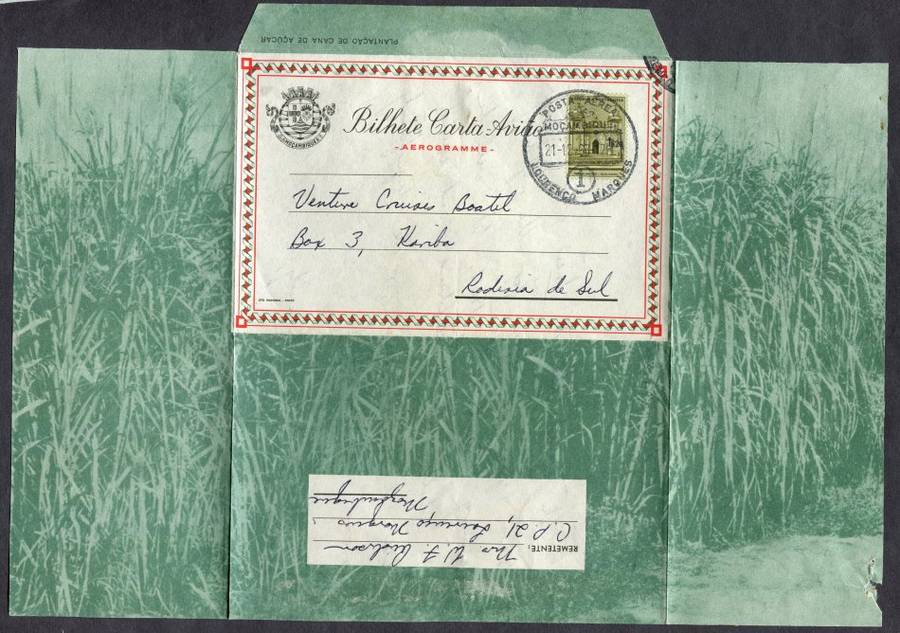 PLANTAÇÃO DE CANA DE AÇÚCAR
MOÇAMBIQUE
Bilhete Carta-Avião
-AEROGRAMME-
POSTA AÉREA
MOÇAMBIQUE
LOURENÇO MARQUES
1
Venture Cruises Boatel
Box 3, Kariba
Rodesia de Sul
REMETENTE:
Mrs W. F.
C.P. 21, Lourenço Marques
Mozambique